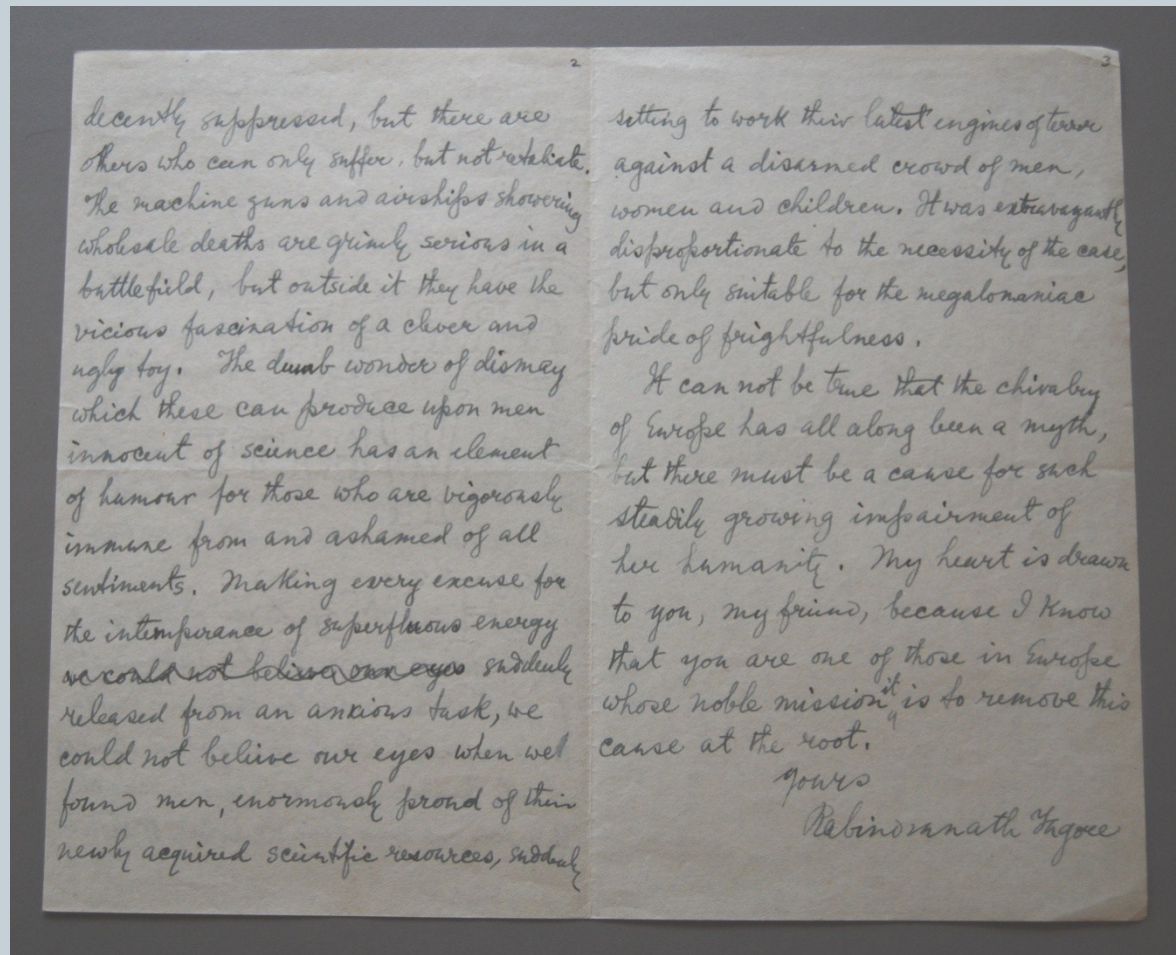 2
decently suppressed, but there are
others who can only suffer, but not retaliate.
The machine guns and airships showering
wholesale deaths are grimly serious in a
battlefield, but outside it they have the
vicious fascination of a clever and
ugly toy. The dumb wonder of dismay
which these can produce upon men
innocent of science has an element
of humour for those who are vigorously
immune from and ashamed of all
sentiments. Making every excuse for
the intemperance of superfluous energy
we could not believe our eyes suddenly
released from an anxious task, we
could not believe our eyes when we
found men, enormously proud of their
newly acquired scientific resources, suddenly
3
setting to work their latest engines of terror
against a disarmed crowd of men,
women and children. It was extravagantly
disproportionate to the necessity of the case,
but only suitable for the megalomaniac
pride of frightfulness.
It can not be true that the chivalry
of Europe has all along been a myth,
but there must be a cause for such
steadily growing impairment of
her humanity. My heart is drawn
to you, my friend, because I know
that you are one of those in Europe
whose noble mission it is to remove this
cause at the root.
Yours
Rabindranath Tagore